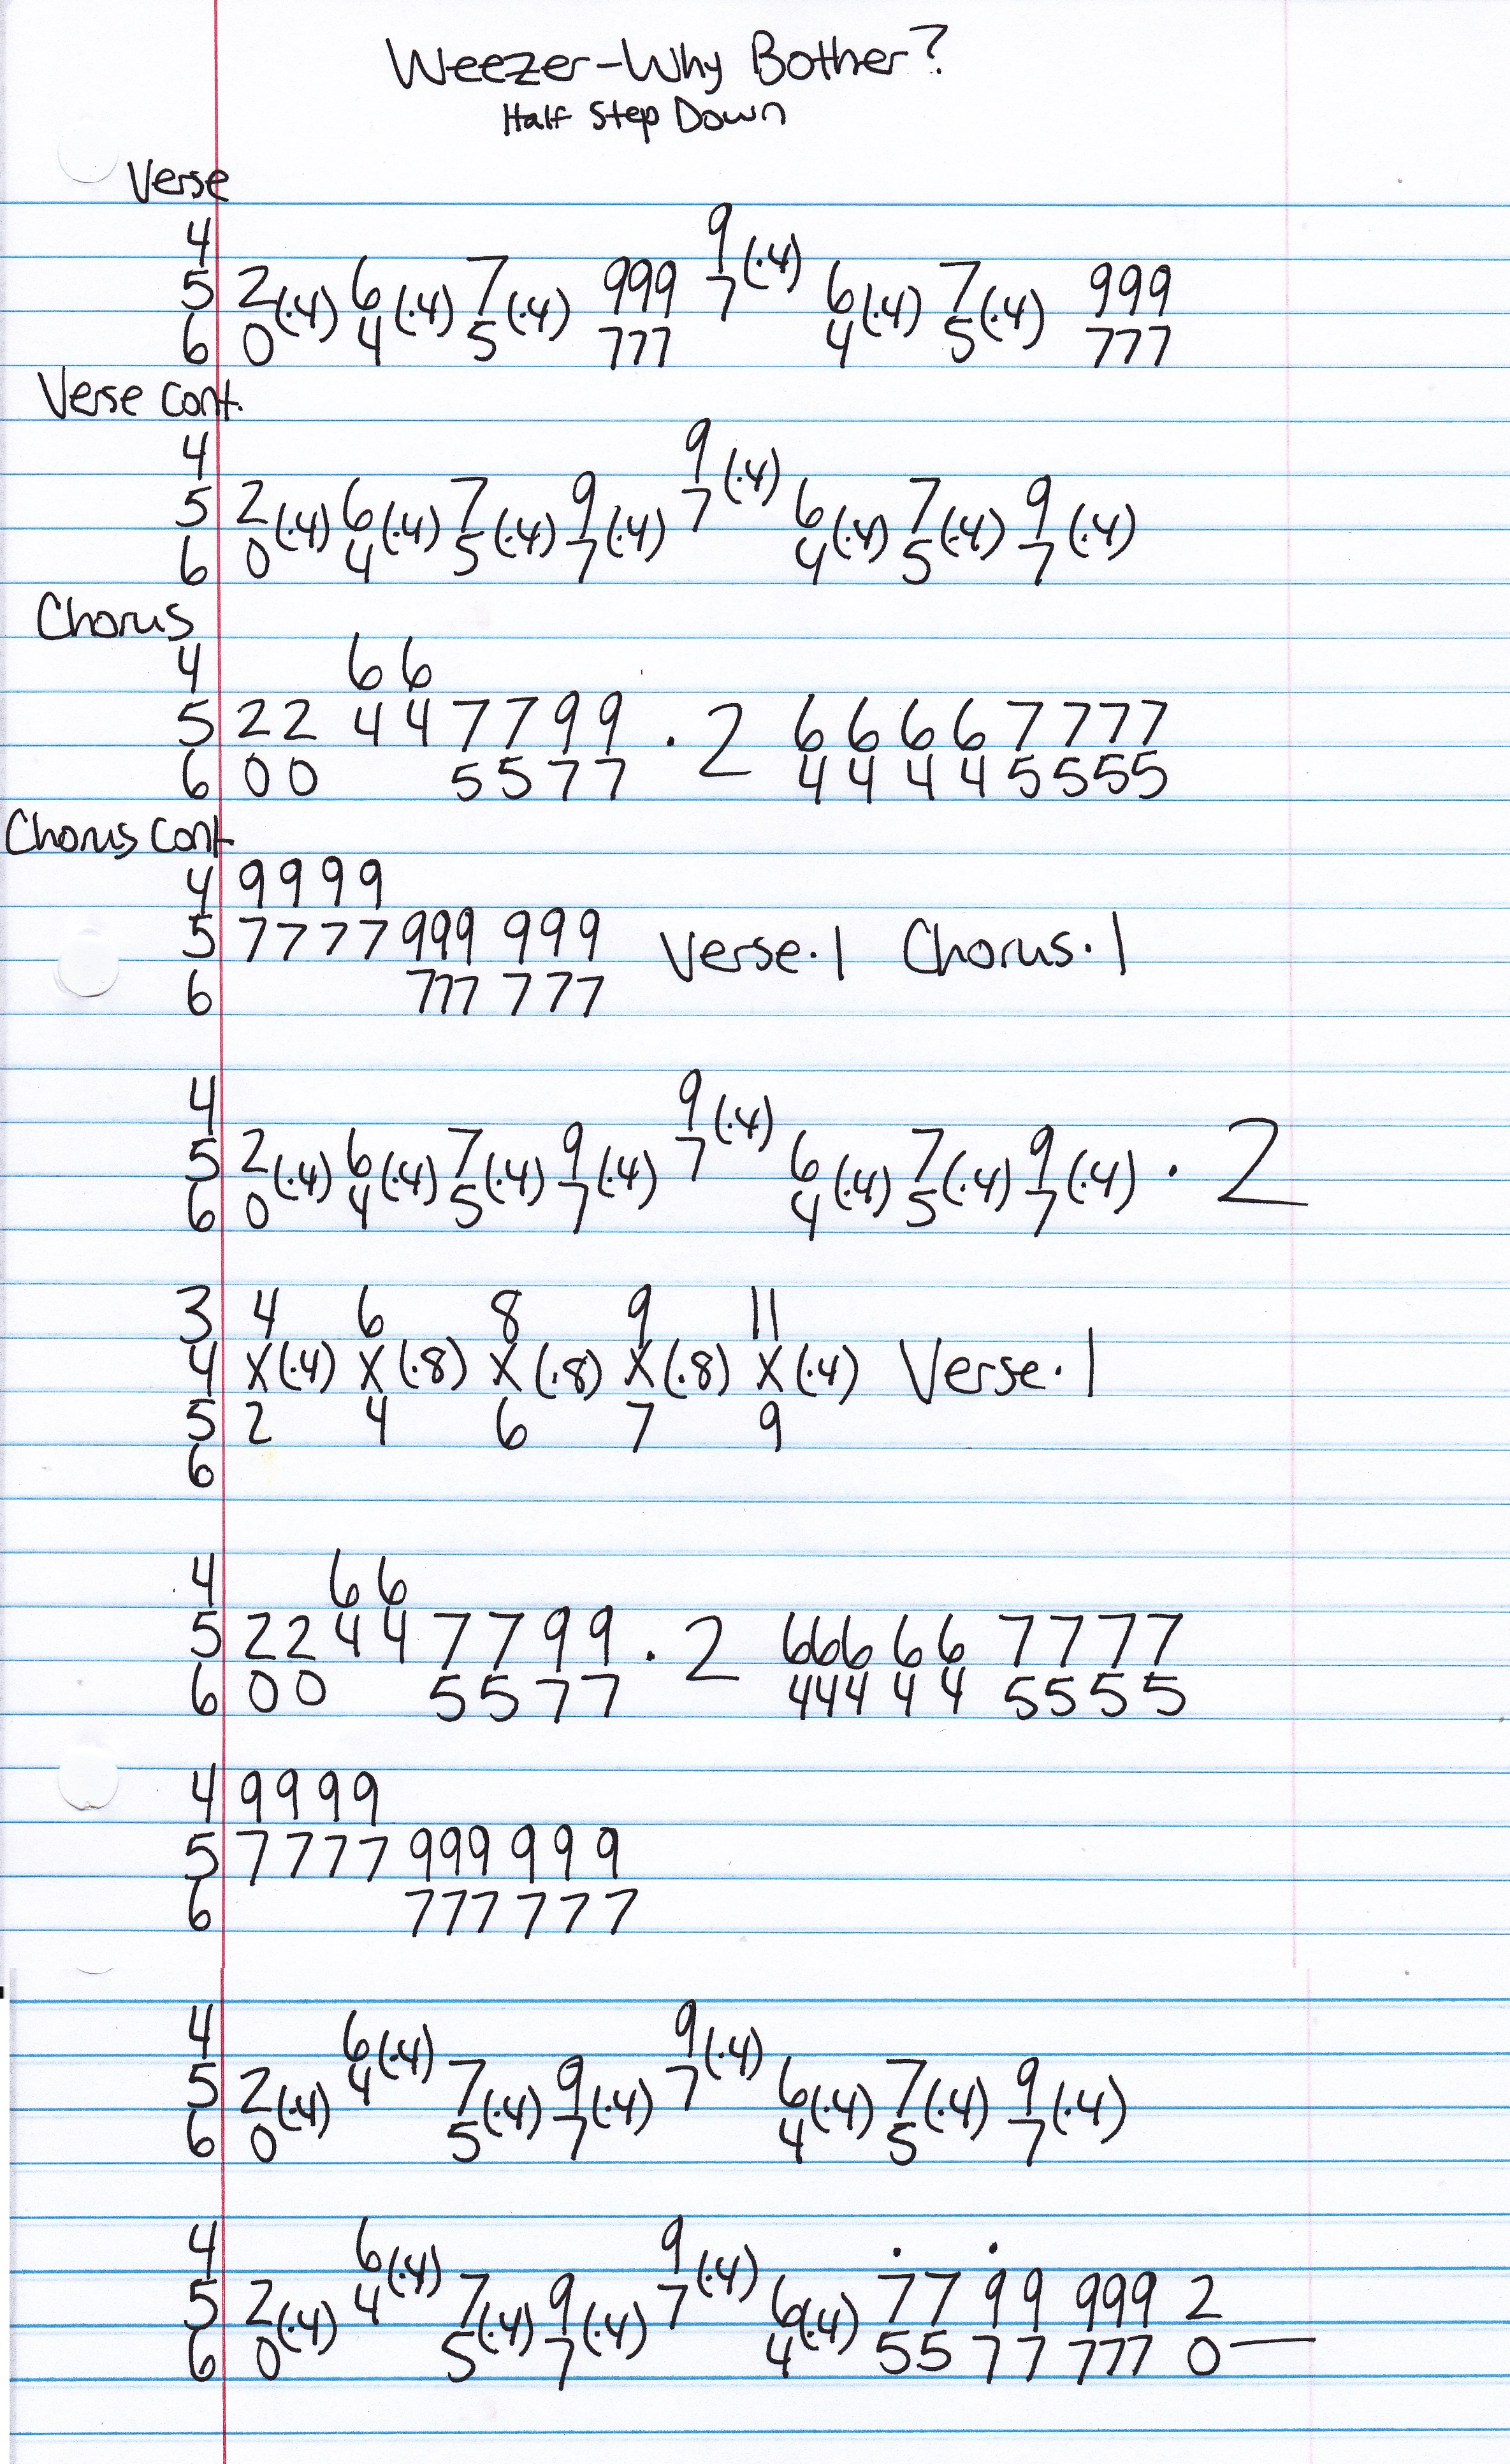 Weezer-Why Bother?
Half Step Down
Verse
4 9
5 2(·4) 6(·4) 7(·4) 999 7(·4) 6(·4) 7(·4) 999
6 0 4 5 777 4 5 777
Verse Cont.
4 9
5 2(·4) 6(·4) 7(·4) 9(·4) 7(·4) 6(·4) 7(·4) 9(·4)
6 0 4 5 7 4 5 7
Chorus
4 6 6
5 2 2 4 4 7 7 9 9 · 2 6 6 6 6 7 7 7 7
6 0 0 5 5 7 7 4 4 4 4 5 5 5 5
Chorus Cont
4 9 9 9 9
5 7 7 7 7 999 9 9 9 Verse·1 Chorus·1
6 777 7 7 7
4 9
5 2(·4) 6(·4) 7(·4) 9(·4) 7(·4) 6(·4) 7(·4) 9(·4) · 2
6 0 4 5 7 4 5 7
3 4 6 8 9 11
4 X(·4) X(·8) X(·8) X(·8) X(·4) Verse·1
5 2 4 6 7 9
6
4 6 6
5 2 2 4 4 7 7 9 9 · 2 666 6 6 7 7 7 7
6 0 0 5 5 7 7 444 4 4 5 5 5 5
4 9 9 9 9
5 7 7 7 7 999 9 9 9
6 777 7 7 7
4 6(·4) 9(·4)
5 2(·4) 4 7(·4) 9(·4) 7 6(·4) 7(·4) 9(·4)
6 0 5 7 4 5 7
4 6(·4) 9(·4) · ·
5 2(·4) 4 7(·4) 9(·4) 7 6(·4) 7 7 9 9 999 2
6 0 5 7 4 5 5 7 7 777 0—